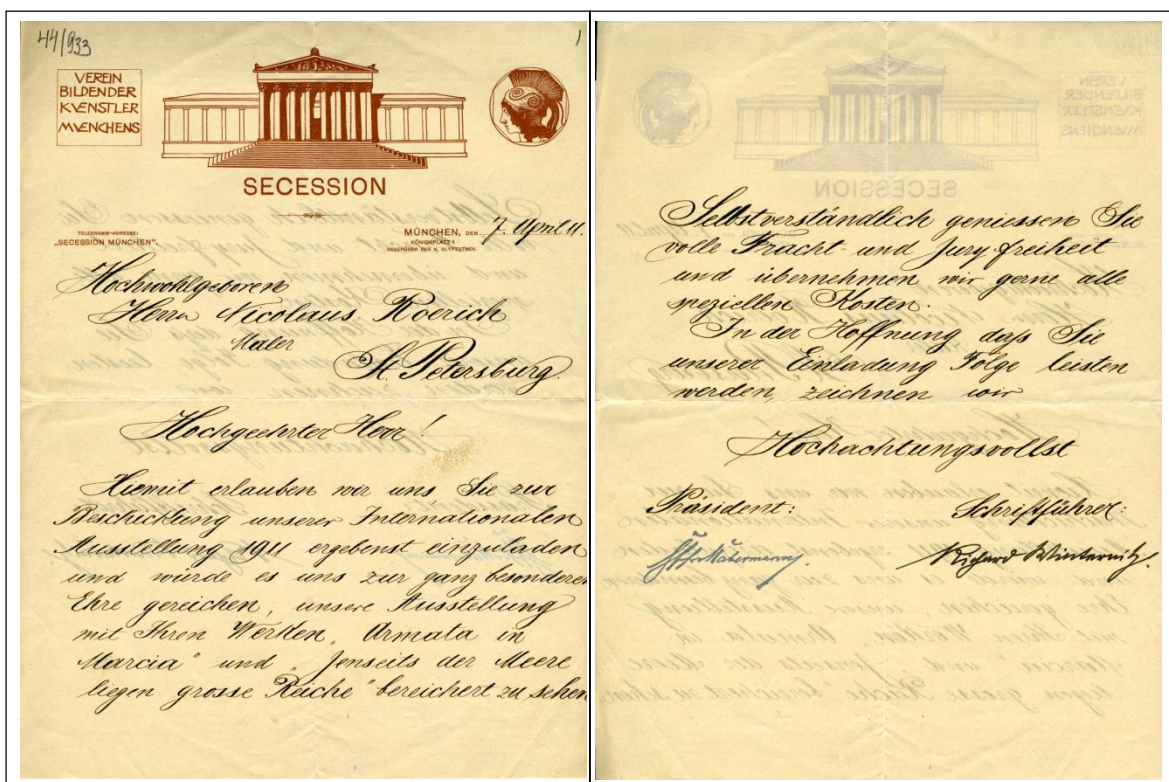 44/933
1
VEREIN
BILDENDER
KVENSTLER
MVENCHENS
SECESSION
TELEGRAMM-ADRESSE:
„SECESSION MÜNCHEN”.
MÜNCHEN, DEN 7. April 11.
KÖNIGSPLATZ 1
GEGENÜBER DER K. GLYPTOTHEK.
Hochwohlgeboren
Herrn Nicolaus Roerich
Maler
St. Petersburg.
Hochgeehrter Herr!
Hiemit erlauben wir uns Sie zur
Beschickung unserer Internationalen
Ausstellung 1911 ergebenst einzuladen
und würde es uns zur ganz besonderen
Ehre gereichen, unsere Ausstellung
mit Ihren Werken „Armata in
Marcia" und „Jenseits der Meere
liegen grosse Reiche" bereichert zu sehen
Selbstverständlich geniessen Sie
volle Fracht- und Jury freiheit
und übernehmen wir gerne alle
speziellen Kosten.
In der Hoffnung daß Sie
unserer Einladung Folge leisten
werden, zeichnen wir
Hochachtungsvollst
Präsident:
Schriftführer:
Richard Winternitz.